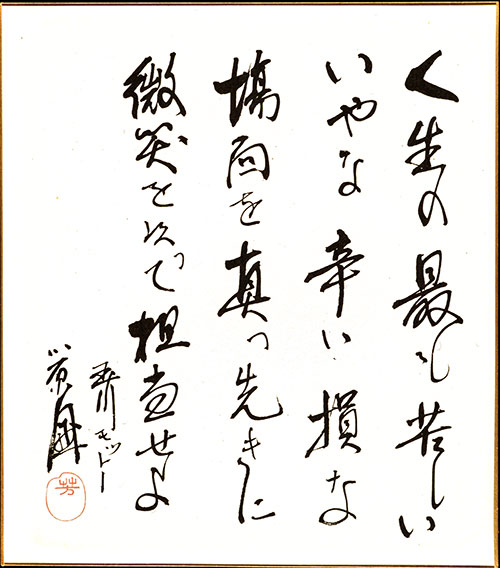 人生の最も苦しい
いやな辛い損な
場面を真っ先きに
微笑を以って担当せよ
モットー
芳